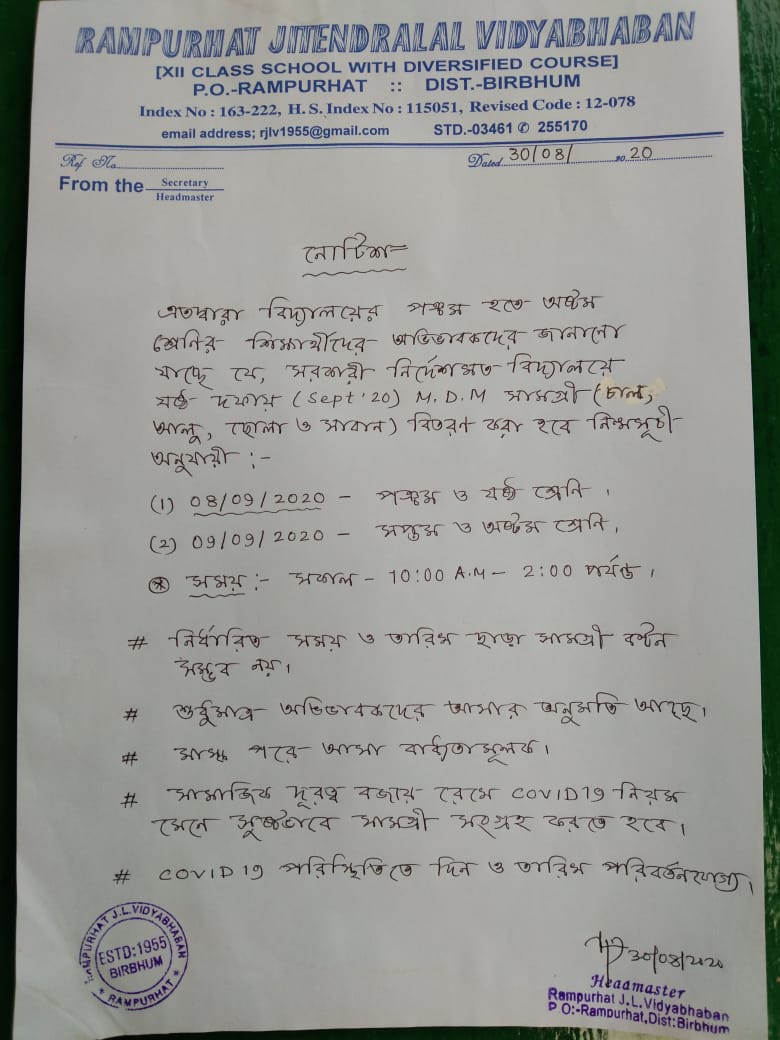 RAMPURHAT JITENDRALAL VIDYABHABAN
[XII CLASS SCHOOL WITH DIVERSIFIED COURSE]
P.O.-RAMPURHAT :: DIST.-BIRBHUM
Index No : 163-222, H. S. Index No : 115051, Revised Code : 12-078
email address; rjlv1955@gmail.com STD.-03461 ✆ 255170
Ref. No. Dated 30/08/ 20 20
From the Secretary
Headmaster
নোটিশ
এতদ্বারা বিদ্যালয়ের পঞ্চম হতে অষ্টম
শ্রেনির শিক্ষার্থীদের অভিভাবকদের জানানো
যাচ্ছে যে, সরকারী নির্দেশমত বিদ্যালয়ে
ষষ্ঠ দফায় (Sept '20) M.D.M সামগ্রী (চাল,
আলু, ছোলা ও সাবান) বিতরণ করা হবে নিম্নসূচী
অনুযায়ী :-
(1) 08/09/2020 - পঞ্চম ও ষষ্ঠ শ্রেনি ।
(2) 09/09/2020 - সপ্তম ও অষ্টম শ্রেনি,
* সময় :- সকাল - 10:00 A.M - 2:00 পর্যন্ত ।
# নির্ধারিত সময় ও তারিখ ছাড়া সামগ্রী বণ্টন
সম্ভব নয় ।
# শুধুমাত্র অভিভাবকদের আসার অনুমতি আছে ।
# মাস্ক পরে আসা বাধ্যতামূলক ।
# সামাজিক দূরত্ব বজায় রেখে COVID19 নিয়ম
মেনে সুষ্ঠভাবে সামগ্রী সংগ্রহ করতে হবে ।
# COVID19 পরিস্থিতিতে দিন ও তারিখ পরিবর্তনযোগ্য ।
RAMPURHAT J.L.VIDYABHABAN
ESTD:1955
BIRBHUM
* RAMPURHAT *
30/08/2020
Headmaster
Rampurhat J.L.Vidyabhaban
P.O:-Rampurhat,Dist:Birbhum